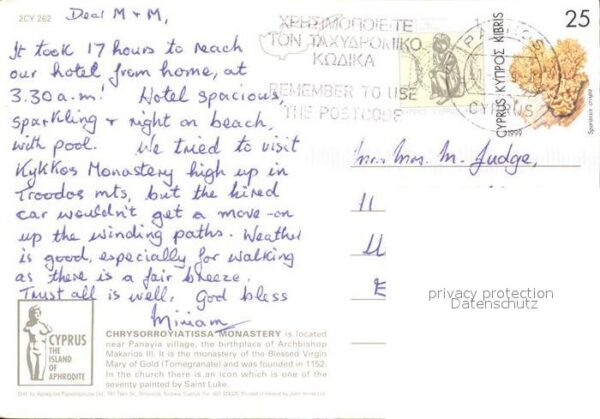 2CY 262
Dear M + M,
It took 17 hours to reach
our hotel from home, at
3.30 a.m! Hotel spacious,
sparkling + right on beach,
with pool. We tried to visit
Kykkos Monastery high up in
Troodos mts, but the hired
car wouldn't get a move-on
up the winding paths. Weather
is good, especially for walking
as there is a fair breeze.
Trust all is well. God bless
Miriam
CYPRUS
THE
ISLAND
OF
APHRODITE
CHRYSORROYIATISSA MONASTERY is located
near Panayia village, the birthplace of Archbishop
Makarios III. It is the monastery of the Blessed Virgin
Mary of Gold (Tomegranate) and was founded in 1152.
In the church there is an icon which is one of the
severity painted by Saint Luke.
ΧΡΗΣΙΜΟΠΟΙΕΙΤΕ
ΤΟΝ ΤΑΧΥΔΡΟΜΙΚΟ
ΚΩΔΙΚΑ
REMEMBER TO USE
THE POSTCODE
CYPRUS
25
CYPRUS ΚΥΠΡΟΣ KIBRIS
1999
Sparassis crispa
Mr. Mrs. M. Judge,
11
E
privacy protection
Datenschutz